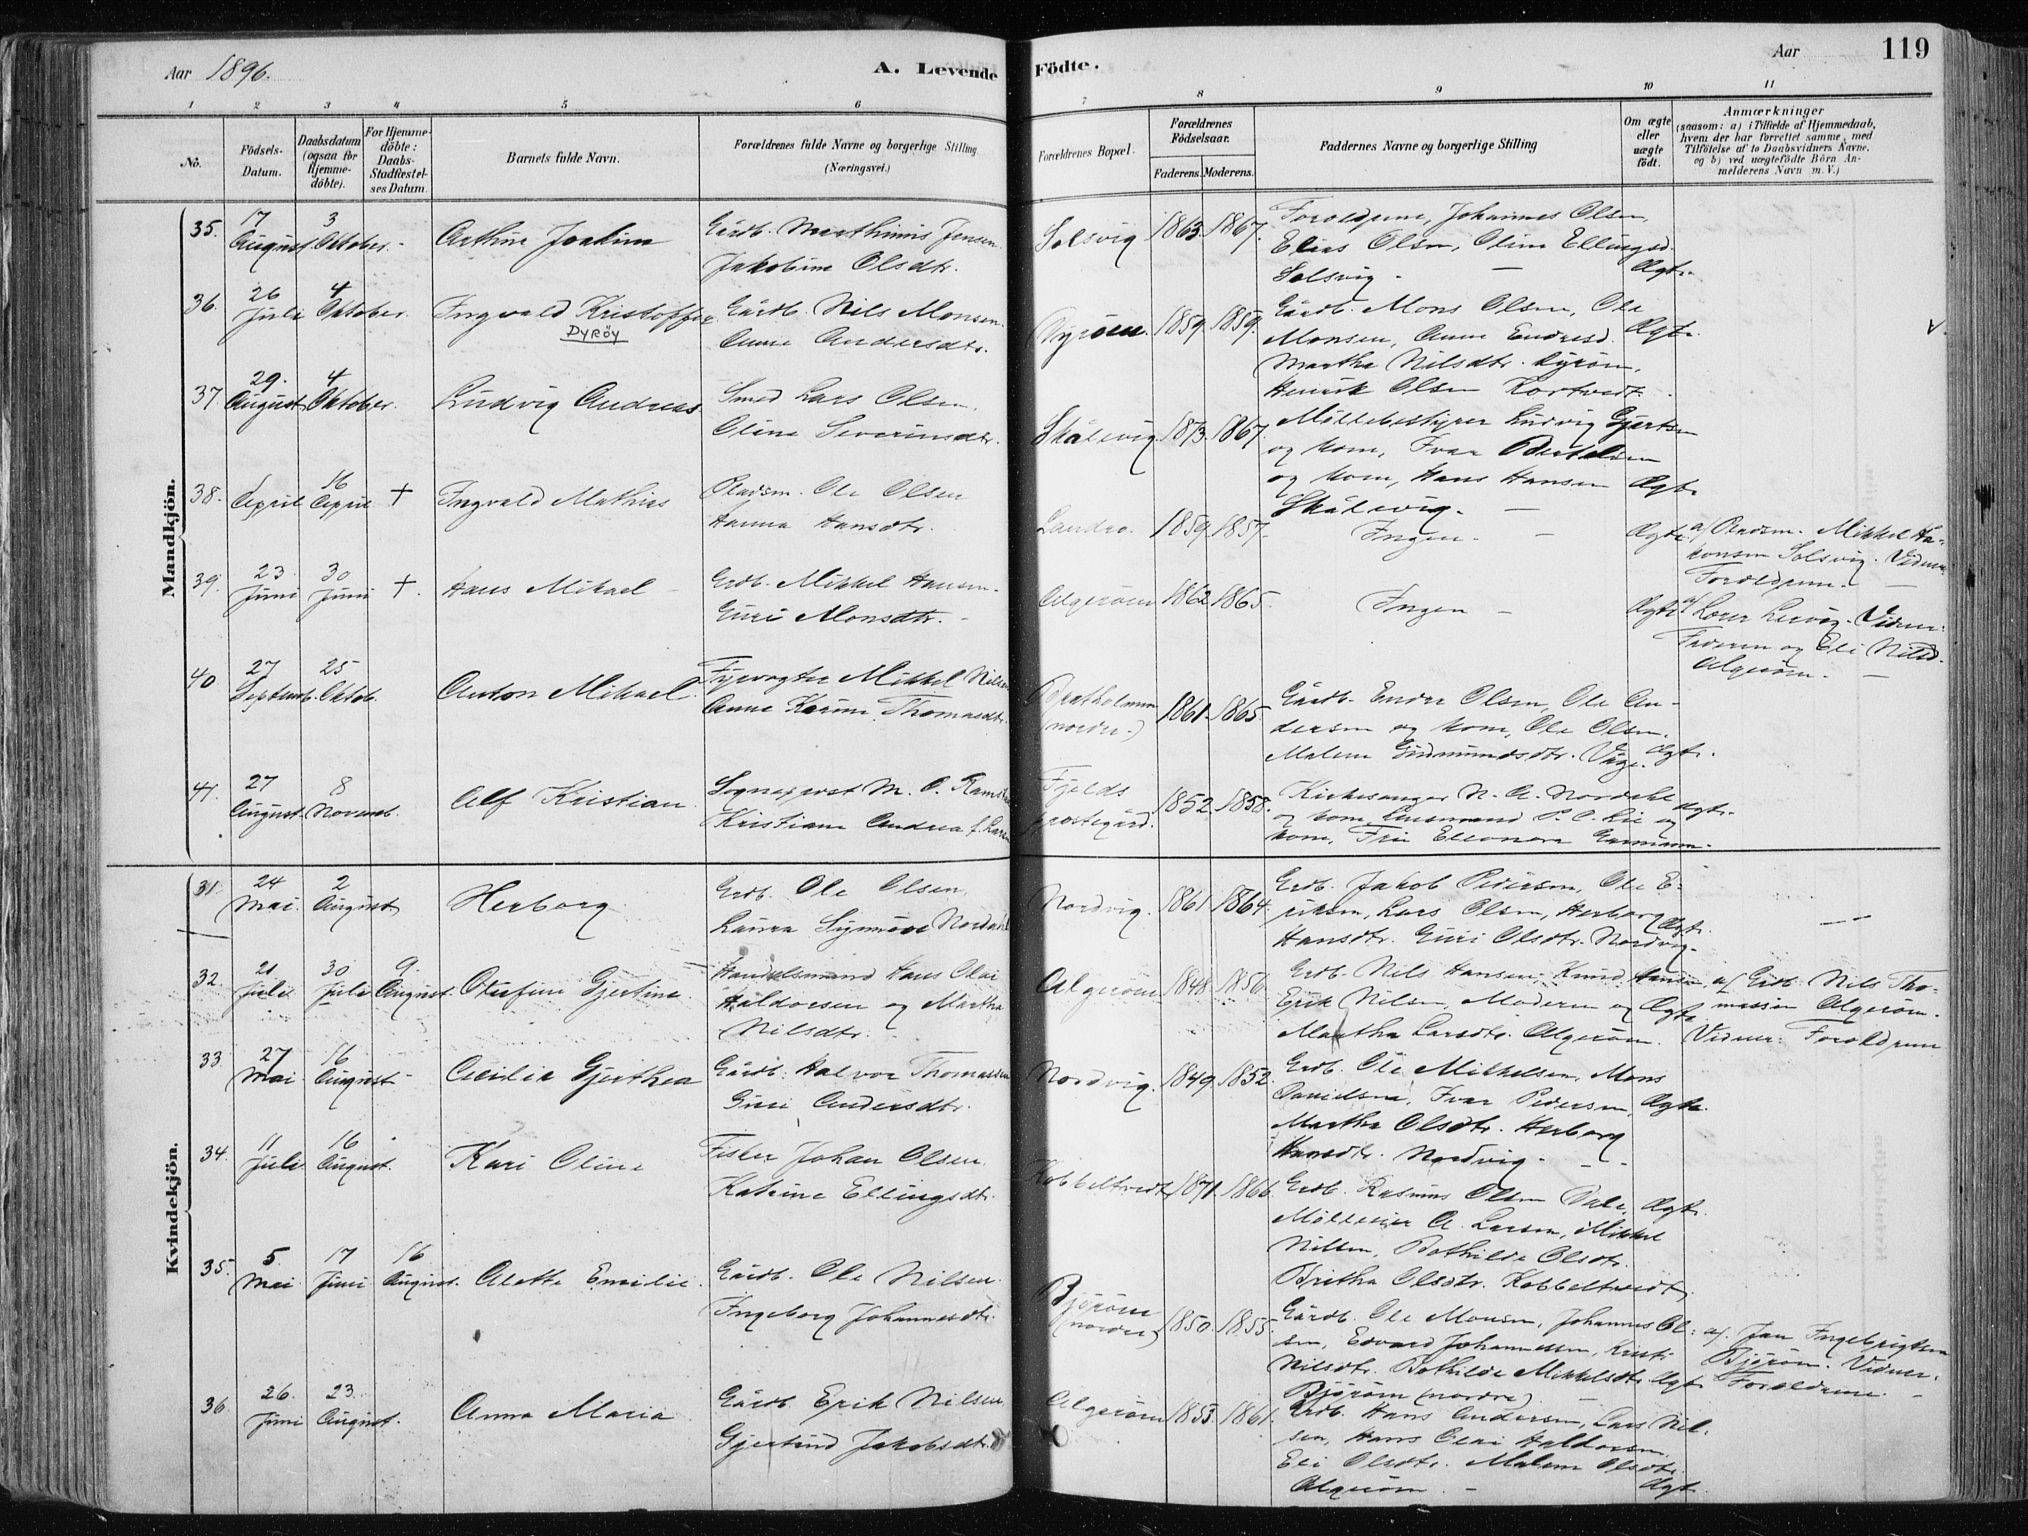 Aar 1896.
A. Levende
Födte.
Aar
119
1 2 3 4 5 6
7 8 9 10 11
No.
Födsels-Datum.
Daabsdatum (ogsaa for Hjemme-döbte).
For Hjemme-döbte: Daabs-Stadfæstel-ses Datum.
Barnets fulde Navn.
Forældrenes fulde Navne og borgerlige Stilling (Næringsvei.)
Forældrenes Bopæl.
Forældrenes Födselsaar.
Faderens. Moderens.
Faddernes Navne og borgerlige Stilling
Om ægte eller uægte födt.
Anmærkninger
(saasom: a) i Tilfælde af Hjemmedaab, hvem der har forrettet samme, med Tilföielse af to Daabsvidners Navne, og b) ved uægtefödte Börn An-melderens Navn m. V.)
Mandkjön.
35. 17 August. 3 Oktober. - Arthur Joakim
Gårdb. Marthinus Jensen
Jakobine Olsdtr.
Solsvig 1863. 1867.
Foreldrene, Johannes Olsen,
Elias Olsen, Oline Ellingsd.
Solsvig - Ægte.
36. 26 Juli 4 Oktober. Ingvald Kristoffer
DYRÖY
Gårdb. Nils Monsen.
Anne Andersdtr.
Dyröen. 1859. 1859.
Gårdb. Mons Olsen, Ole
Monsen, Anne Endresd.
Martha Nilsdtr. Dyröen,
Henrik Olsen Kortvedt.
Ægte.
V
37. 29. August 4 Oktober. Ludvig Andreas
Smed Lars Olsen.
Oline Severinsdtr.
Skålevig. 1873. 1867.
Möllebestyrer Ludvig Gjertsen
og kone, Ivar Bertelsen
og kone, Hans Hansen Ægte
Skålevig. -
38. April 16 April + Ingvald Mathias
Pladsm. Ole Olsen
Hanna Hansdtr.
Landro. 1859. 1857.
Ingen. -
Ægte
af Pladsm. Mikkel Ha-
konsen Solsvig. Vidner
Foreldrene. -
39. 23 Juni 30 Juni +. Hans Mikael
Grdb. Mikkel Hansen.
Guri Monsdtr. -
Algeröen 1862. 1865.
Ingen -
Ægte
af Lærer Lervig. Vidner:
Faderen og Eli Nilsd.
Algeröen. -
40 27 Septemb. 25 Oktob. Anton Mikael.
Fyrvogter Mikkel Nilsen
Anne Karine Thomasdtr.
Bratholmen (nordre.) 1861. 1865.
Gårdb. Endre Olsen, Ole An-
dersen og kone, Ole Olsen,
Malene Gudmundsdtr. Våge. Ægte.
41. 27 August. 8 Novemb. Alf Kristian
Sogneprest M. C.
Kristiane Andrea f. Larsen
Fjelds prestegård. 1852. 1858.
Kirkesanger N. A. Nordahl
og kone, Lensmand P. C. Lie og
kone, Frü Eleonora Garmann. Ægte.
Kvindekjön.
31. 24 Mai. 2 August Herborg
Grdb. Ole Olsen,
Laura Synnöve Nordahl
Nordvig. 1861. 1864.
Grdb. Jakob Pedersen, Ole E-
riksen, Lars Olsen, Herborg
Hansdtr. Guri Olsdtr. Nordvig. Ægte.
32. 21 Juli 30 Juli 9. August. Olufine Gjertine
Handelsmand Hans Olai
Haldorsen og Martha
Nilsdtr.
Algeröen 1848. 1856.
Grdb. Nils Hansen. Knud Hansen
Erik Nilsen, Moderen og Ægte
Martha Larsdtr. Algeröen.
af Grdb. Nils Tho-
massen Algeröen.
Vidner: Foreldrene
33 27 Mai 16 August Cecilie Gjerthea
Gårdb. Halvor Thomassen
Guri Andersdtr.
Nordvig. 1849. 1852.
Grdb. Ole Mikkelsen, Mons
Danielsen, Ivar Pedersen, Ægte.
Martha Olsdtr. Herborg
Hansdtr. Nordvig. -
34. 11 Juli 16 August. Kari Oline
Fisker Johan Olsen.
Katrine Ellingsdtr.
Kobbeltvedt 1871. 1866.
Grdb. Rasmus Olsen Dale, Ægte.
Mölleeier A. Larsen, Mikkel
Nilsen, Bothilde Olsdtr.
Britha Olsdtr. Kobbeltvedt
35. 5 Mai. 17 Juni 16 August. Alette Emilie.
Gårdb. Ole Nilsen.
Ingeborg Johannesdtr.
Björöen (nordre) 1850. 1855.
Gårdb. Ole Monsen, Johannes Ol-
sen, Edvard Johannessen, Kristi
Nilsdtr. Bothilde Mikkelsdtr. Ægte
Björöen (nordre)
af. Jan Ingebrigtsen
Björöen. Vidner.
Foreldrene. -
36. 26. Juni 23 August. Anna Maria
Gårdb. Erik Nilsen
Gjertrud Jakobsdtr.
Algeröen 1853. 1861.
Grdb. Hans Andersen, Lars Nil-
sen, Hans Olai Haldorsen
Eli Olsdtr. Malene Olsdtr.
Algeröen - Ægte.